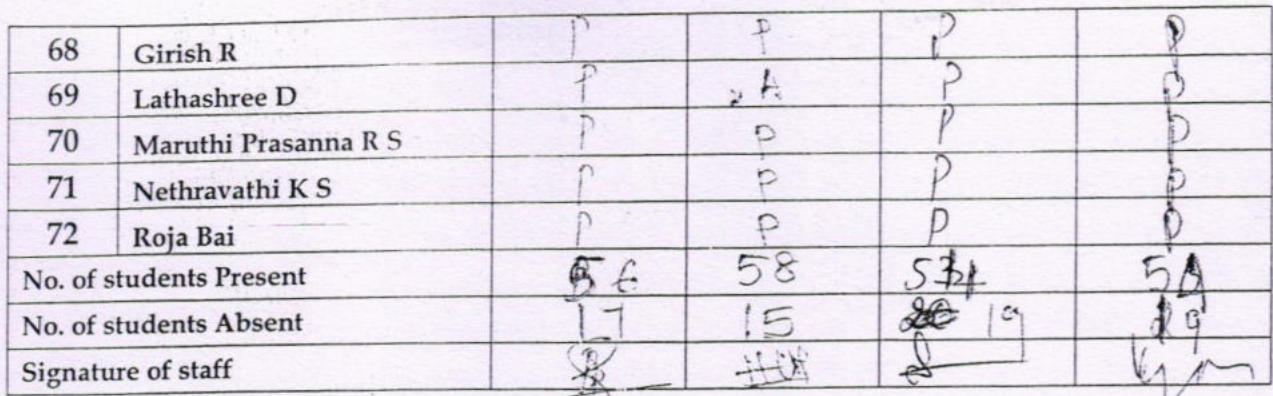 68 Girish R P P P P
69 Lathashree D P A P P
70 Maruthi Prasanna R S P P P P
71 Nethravathi K S P P P P
72 Roja Bai P P P P
No. of students Present 56 58
No. of students Absent 17 15 19 19
Signature of staff